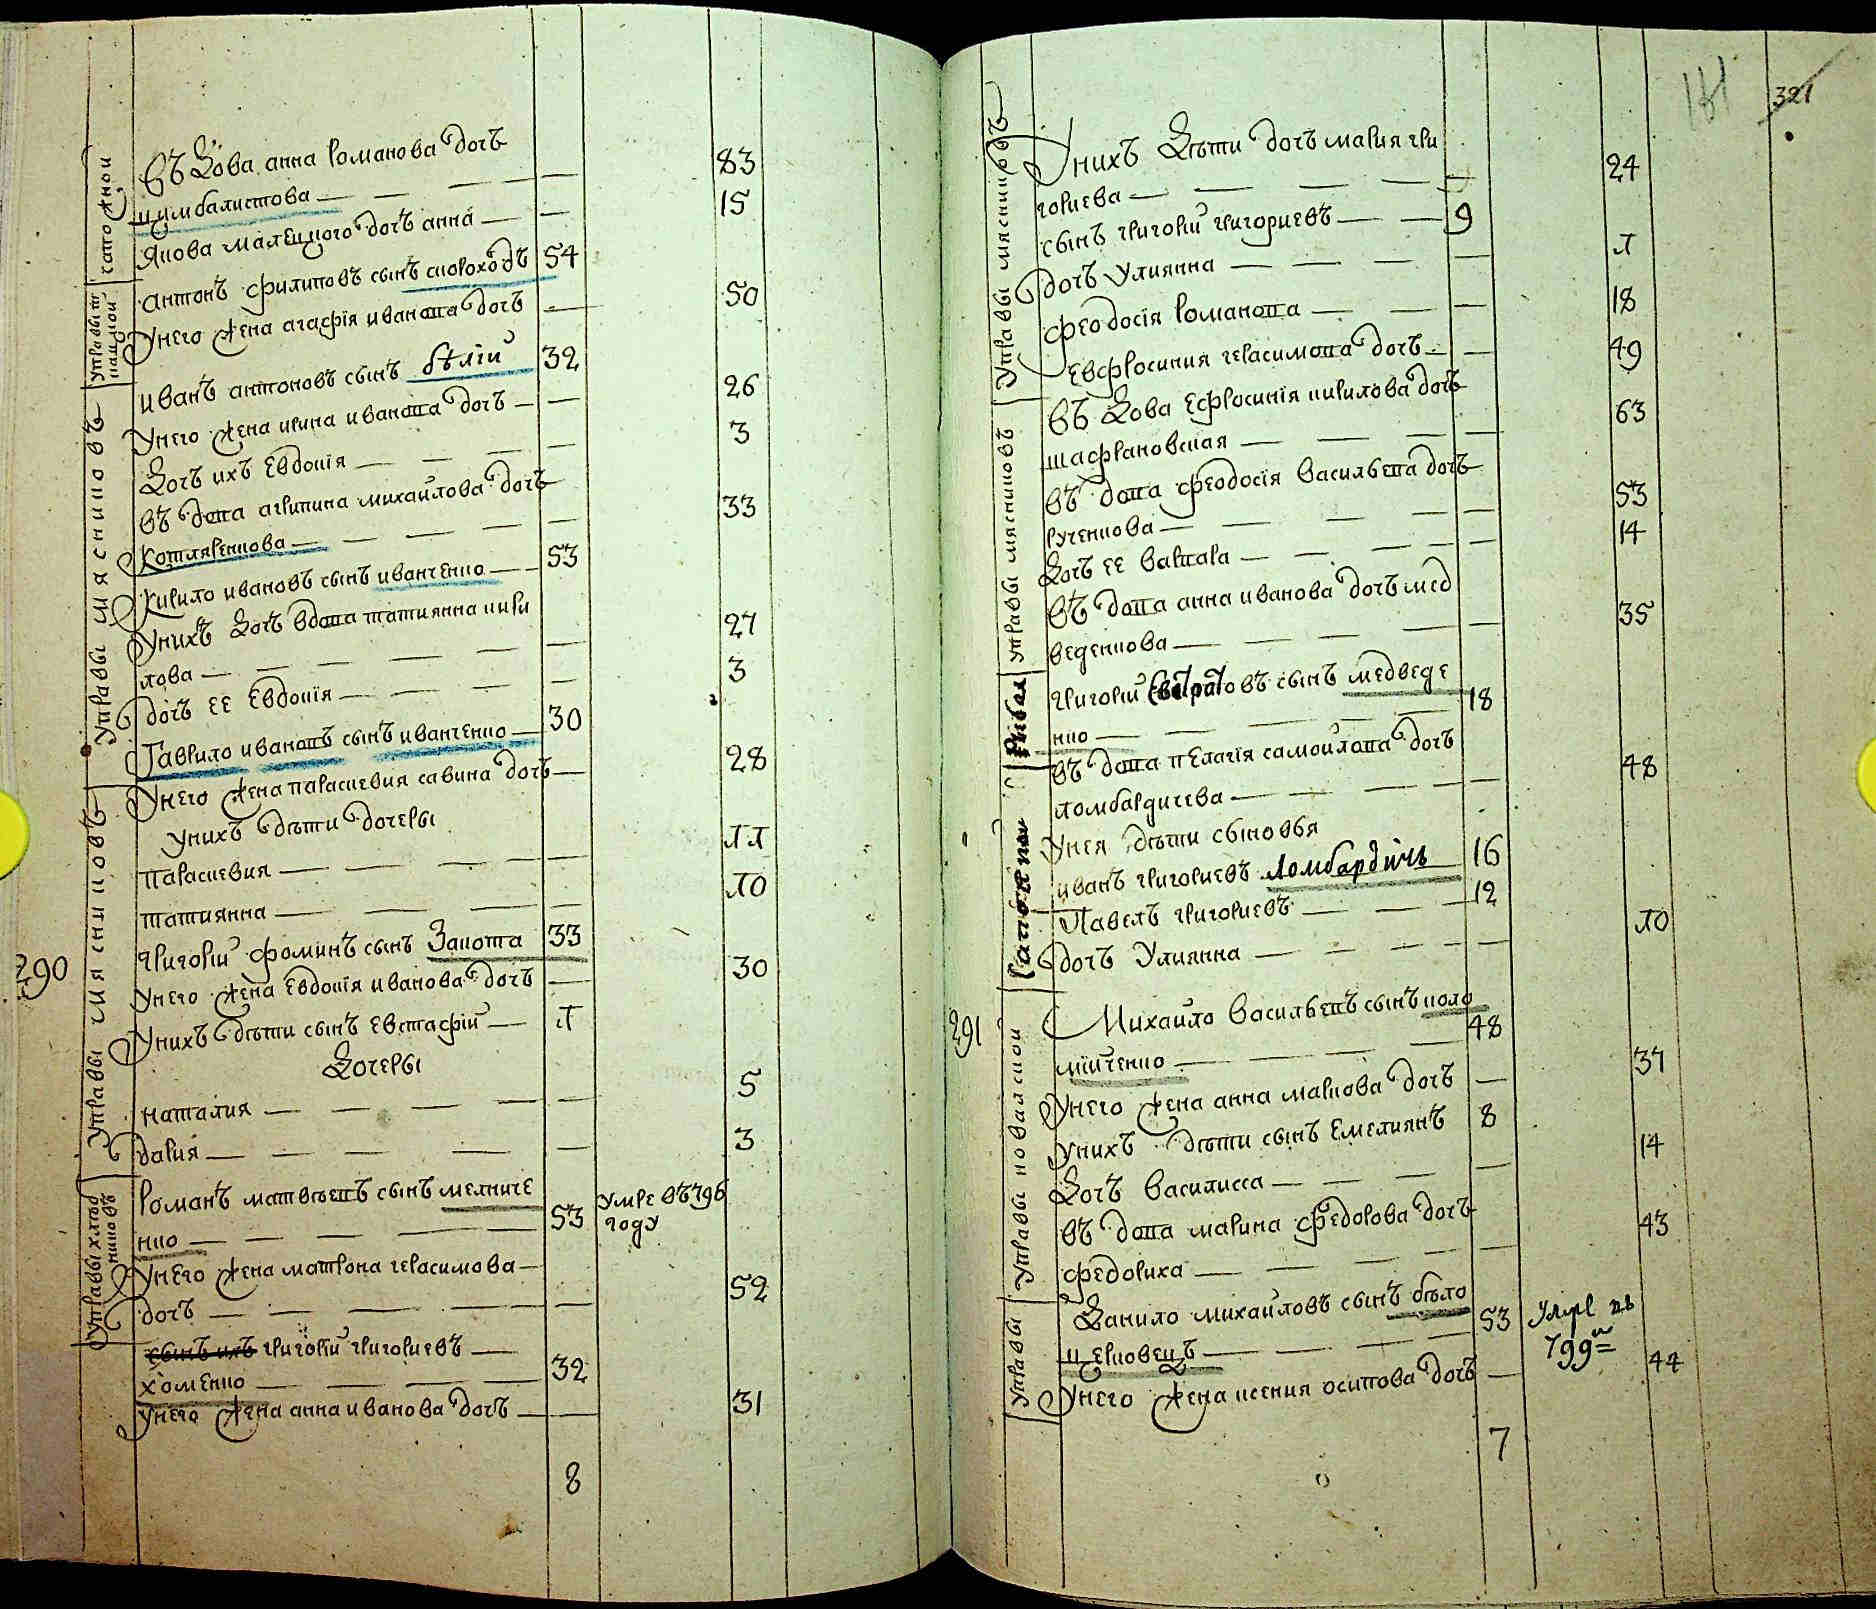 въ Дова анна Романова дочь
цимбалистова 83
Янова малецкого дочь анна 15
антонъ филиповъ сынъ скороходъ 54
Унего жена агафія иванова дочь 50
иванъ антоновъ сынъ бѣлій 32
Унего жена ирина иванова дочь 26
Дочь ихъ Евдокія 3
въ дова агрипина михайлова дочь
Котляренкова 33
Кирило ивановъ сынъ иванченко 53
Унихъ Дочь вдова татиянна кири
лова 27
дочь ее Евдокія 3
Гаврило ивановъ сынъ иванченко 30
Унего жена параскевия савина дочь 28
Унихъ дѣти дочеры
параскевия
татиянна
григорій фоминъ сынъ Закота 33
290
Унего жена Евдокія иванова дочь 30
Унихъ дѣти сынъ Евстафій
Дочеры
наталия 5
дария 3
Романъ матвѣевъ сынъ мелниче
нко 53 умре въ 796
году
Унего жена матрона герасимова
дочь 52
сынъ ихъ григорій григориевъ
хоменко 32
Унего жена анна иванова дочь 31
8
управы мясниковъ
управы мясниковъ
321
Унихъ Дѣти дочь мария гри
гориева 24
сынъ григорій григориевъ 9
дочь Улиянна
феодосія Романова 18
Евфросиния герасимова дочь 49
въ Дова Ефросинія кирилова дочь
шафрановская 63
въ дова феодосія васильева дочь
рученкова 53
Дочь ее варвара 14
въ дова анна иванова дочь мед
веденкова 35
григорій сынъ медведе
нко 18
въ дова пелагія самойлова дочь
ломбардичева 48
Унея дѣти сыновья
иванъ григориевъ Ломбардичь 16
Павелъ григориевъ 12
дочь Улиянна
291
Михайло васильевъ сынъ коло
мійченко 48
Унего жена анна маркова дочь 37
Унихъ дѣти сынъ Емелиянъ 8
Дочь василисса 14
въ дова марина федорова дочь
федориха 43
Данило михайловъ сынъ бѣло
церковецъ 53 умре въ
799м
Унего жена ксения осипова дочь 44
7
управы мясниковъ
управы мясниковъ
управы ковалской
управы